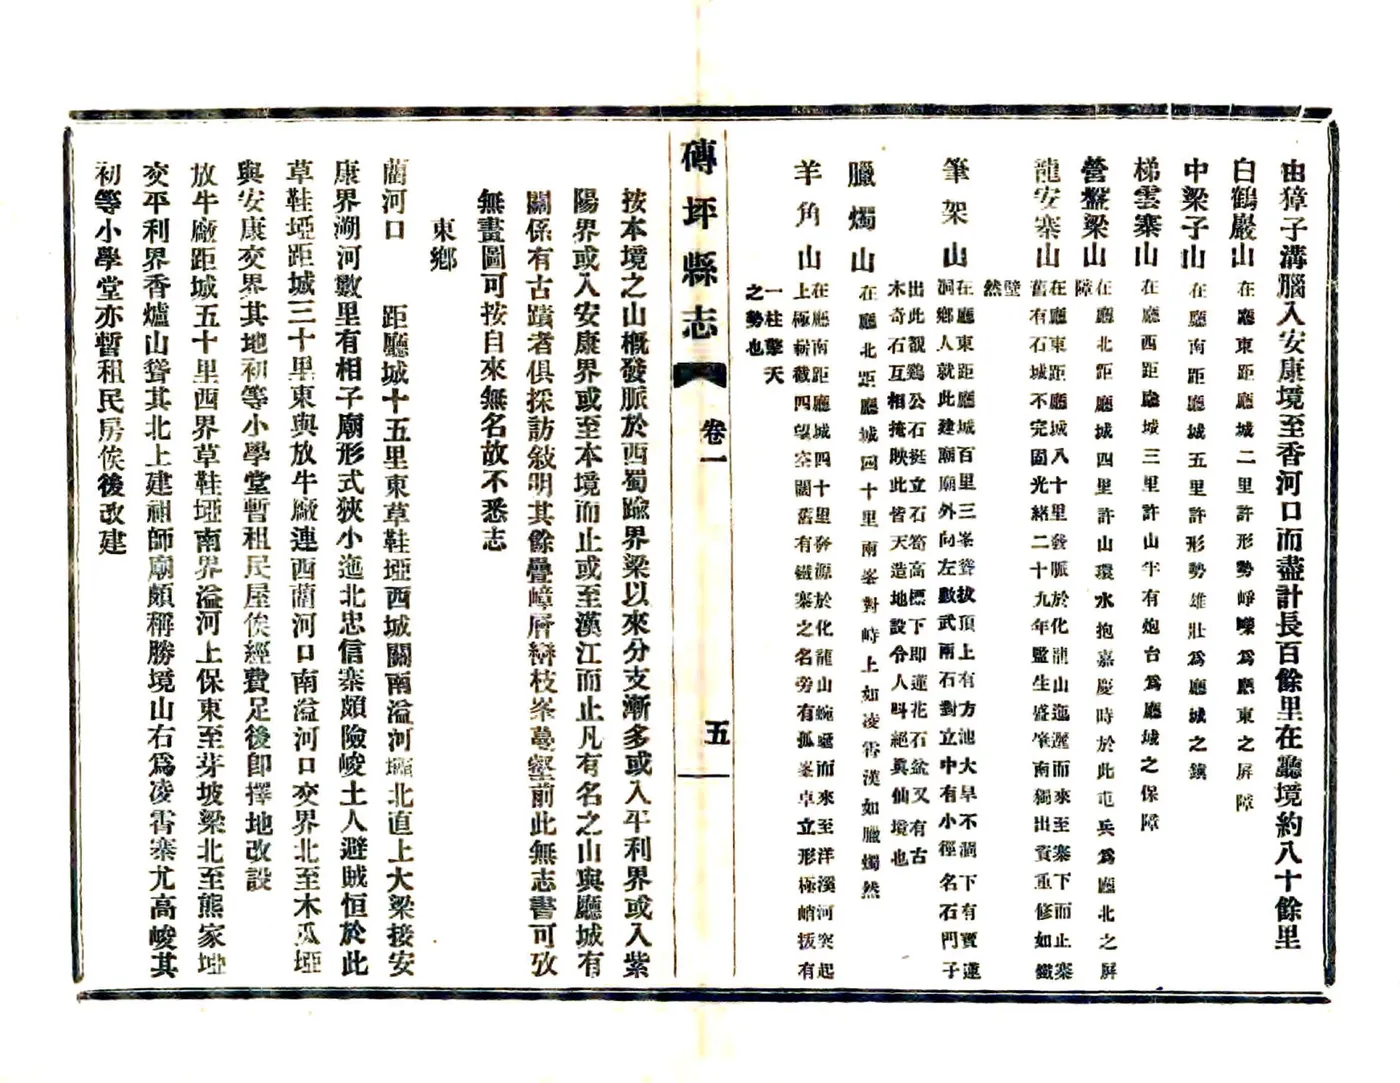 由獐子溝腦入安康境至香河口而盡計長百餘里在廳境約八十餘里
白鶴巖山 在廳東距廳城二里許形勢崢嶸爲廳東之屏障
中梁子山 在廳南距廳城五里許形勢雄壯爲廳城之鎮
梯雲寨山 在廳西距廳城三里許山半有炮台爲廳城之保障
營盤梁山 在廳北距廳城四里許山環水抱嘉慶時於此屯兵爲廳北之屏
障
龍安寨山 在廳東距廳城八十里發脈於化龍山迤邐而來至寨下而止寨
舊有石城不完固光緒二十九年監生盛肇南獨出資重修如鐵
壁
然
筆架山 在廳東距廳城百里三峯聳拔頂上有方池大旱不涸下有寶蓮
洞鄉人就此建廟廟外向左數武兩石對立中有小徑名石門子
出此観鷄公石挺立石筍高標下即蓮花石盆又有古
木奇石互相掩映此皆天造地設令人呌絕眞仙境也
臘燭山 在廳北距廳城四十里南峯對峙上如凌霄漢如臘燭然
羊角山 在廳南距廳城四十里發源於化龍山蜿蜒而來至洋溪河突起
上極嶄截四望空闊舊有鐵寨之名旁有孤峯卓立形極峭拔有
一柱擎天
之勢也
磚坪縣志 卷一 五
按本境之山概發脈於西蜀踰界梁以來分支漸多或入平利界或入紫
陽界或入安康界或至本境而止或至漢江而止凡有名之山與廳城有
關係有古蹟者俱採訪敍明其餘疊嶂層巒枝峯蔓壑前此無志書可攷
無畫圖可按自來無名故不悉志
東鄉
藺河口 距廳城十五里東草鞋埡西城關南溢河壩北直上大梁接安
康界溯河數里有相子廟形式狹小迤北忠信寨頗險峻土人避賊恒於此
草鞋埡距城三十里東與放牛廠連西藺河口南溢河口交界北至木瓜埡
與安康交界其地初等小學堂暫租民屋俟經費足後卽擇地改設
放牛廠距城五十里西界草鞋埡南界溢河上保東至芽坡梁北至熊家埡
交平利界香爐山聳其北上建祖師廟頗稱勝境山右爲凌霄寨尤高峻其
初等小學堂亦暫租民房俟後改建